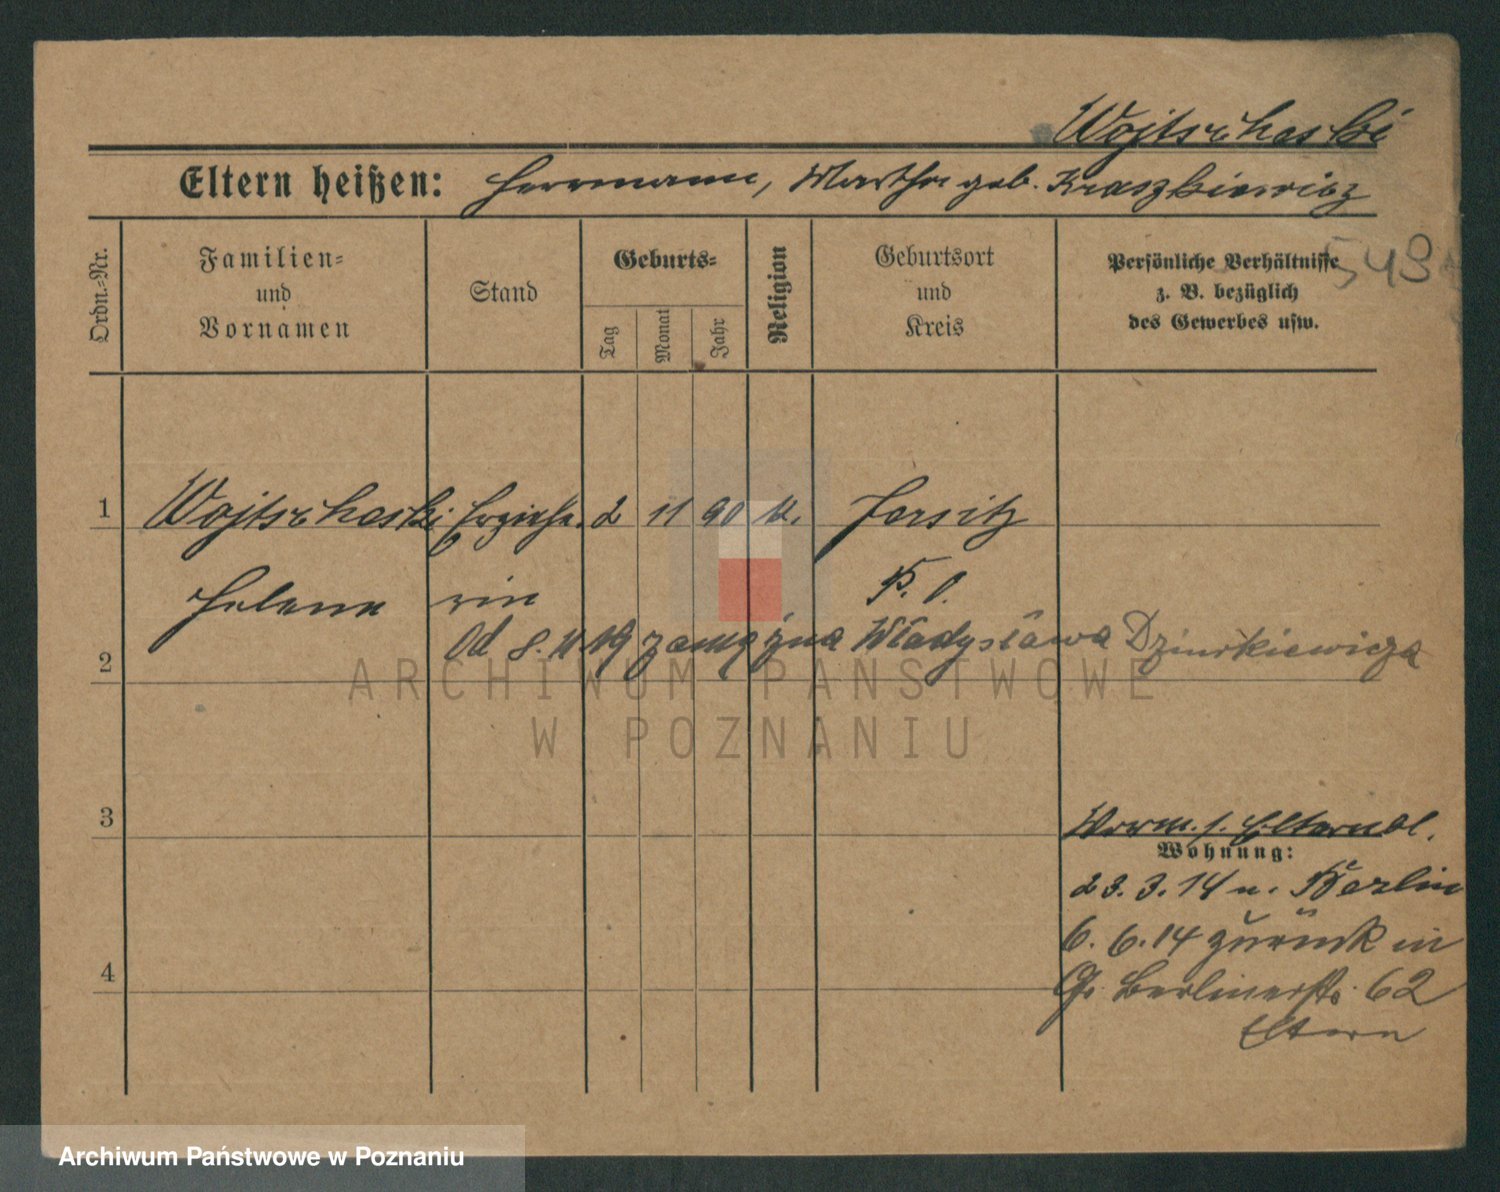 Wojtschaski
Eltern heißen: Herrmann, Martha geb. Kraszkiewicz
543
Ordn.-Nr.
Familien-
und
Vornamen
Stand
Geburts-
Tag
Monat
Jahr
Religion
Geburtsort
und
Kreis
Persönliche Verhältnisse
z. B. bezüglich
des Gewerbes usw.
1 Wojtschaski Erziehe- 2 11 90 k. Jersitz
Helene rin P. O.
Od 8. 11 19 zamężna Władysława Dziurkiewicza
2
ARCHIWUM PAŃSTWOWE
W POZNANIU
3
Vorm. s. Elternbl.
Wohnung:
23.3.14 n. Berlin
6. 6. 14 zurück in
4
G. Berlinerstr. 62
Eltern
Archiwum Państwowe w Poznaniu